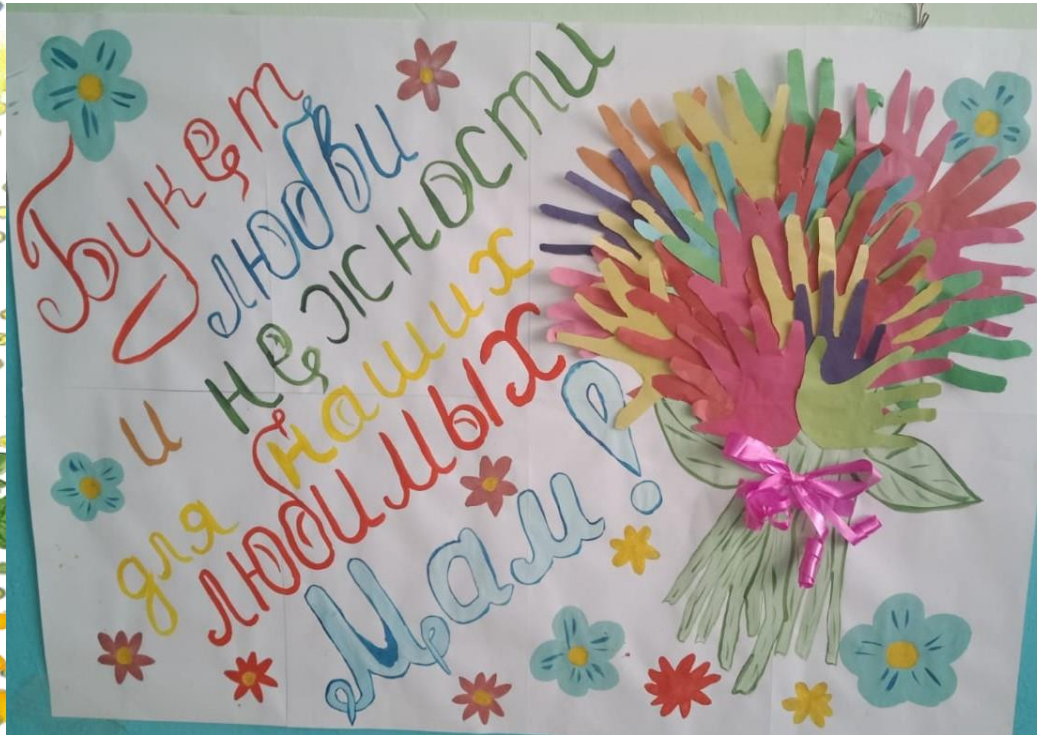 Букет
любви
и нежности
для наших
любимых
Мам!